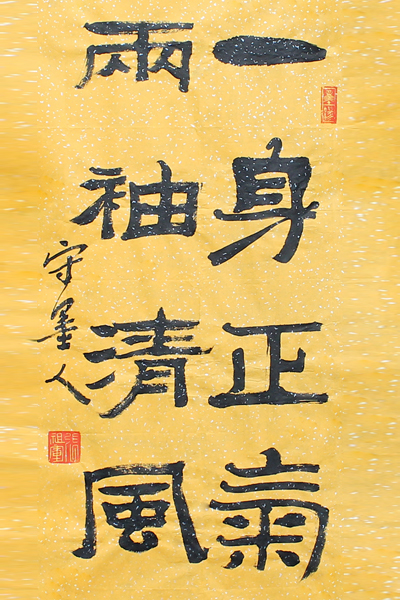 一身正氣
兩袖清風
守墨人